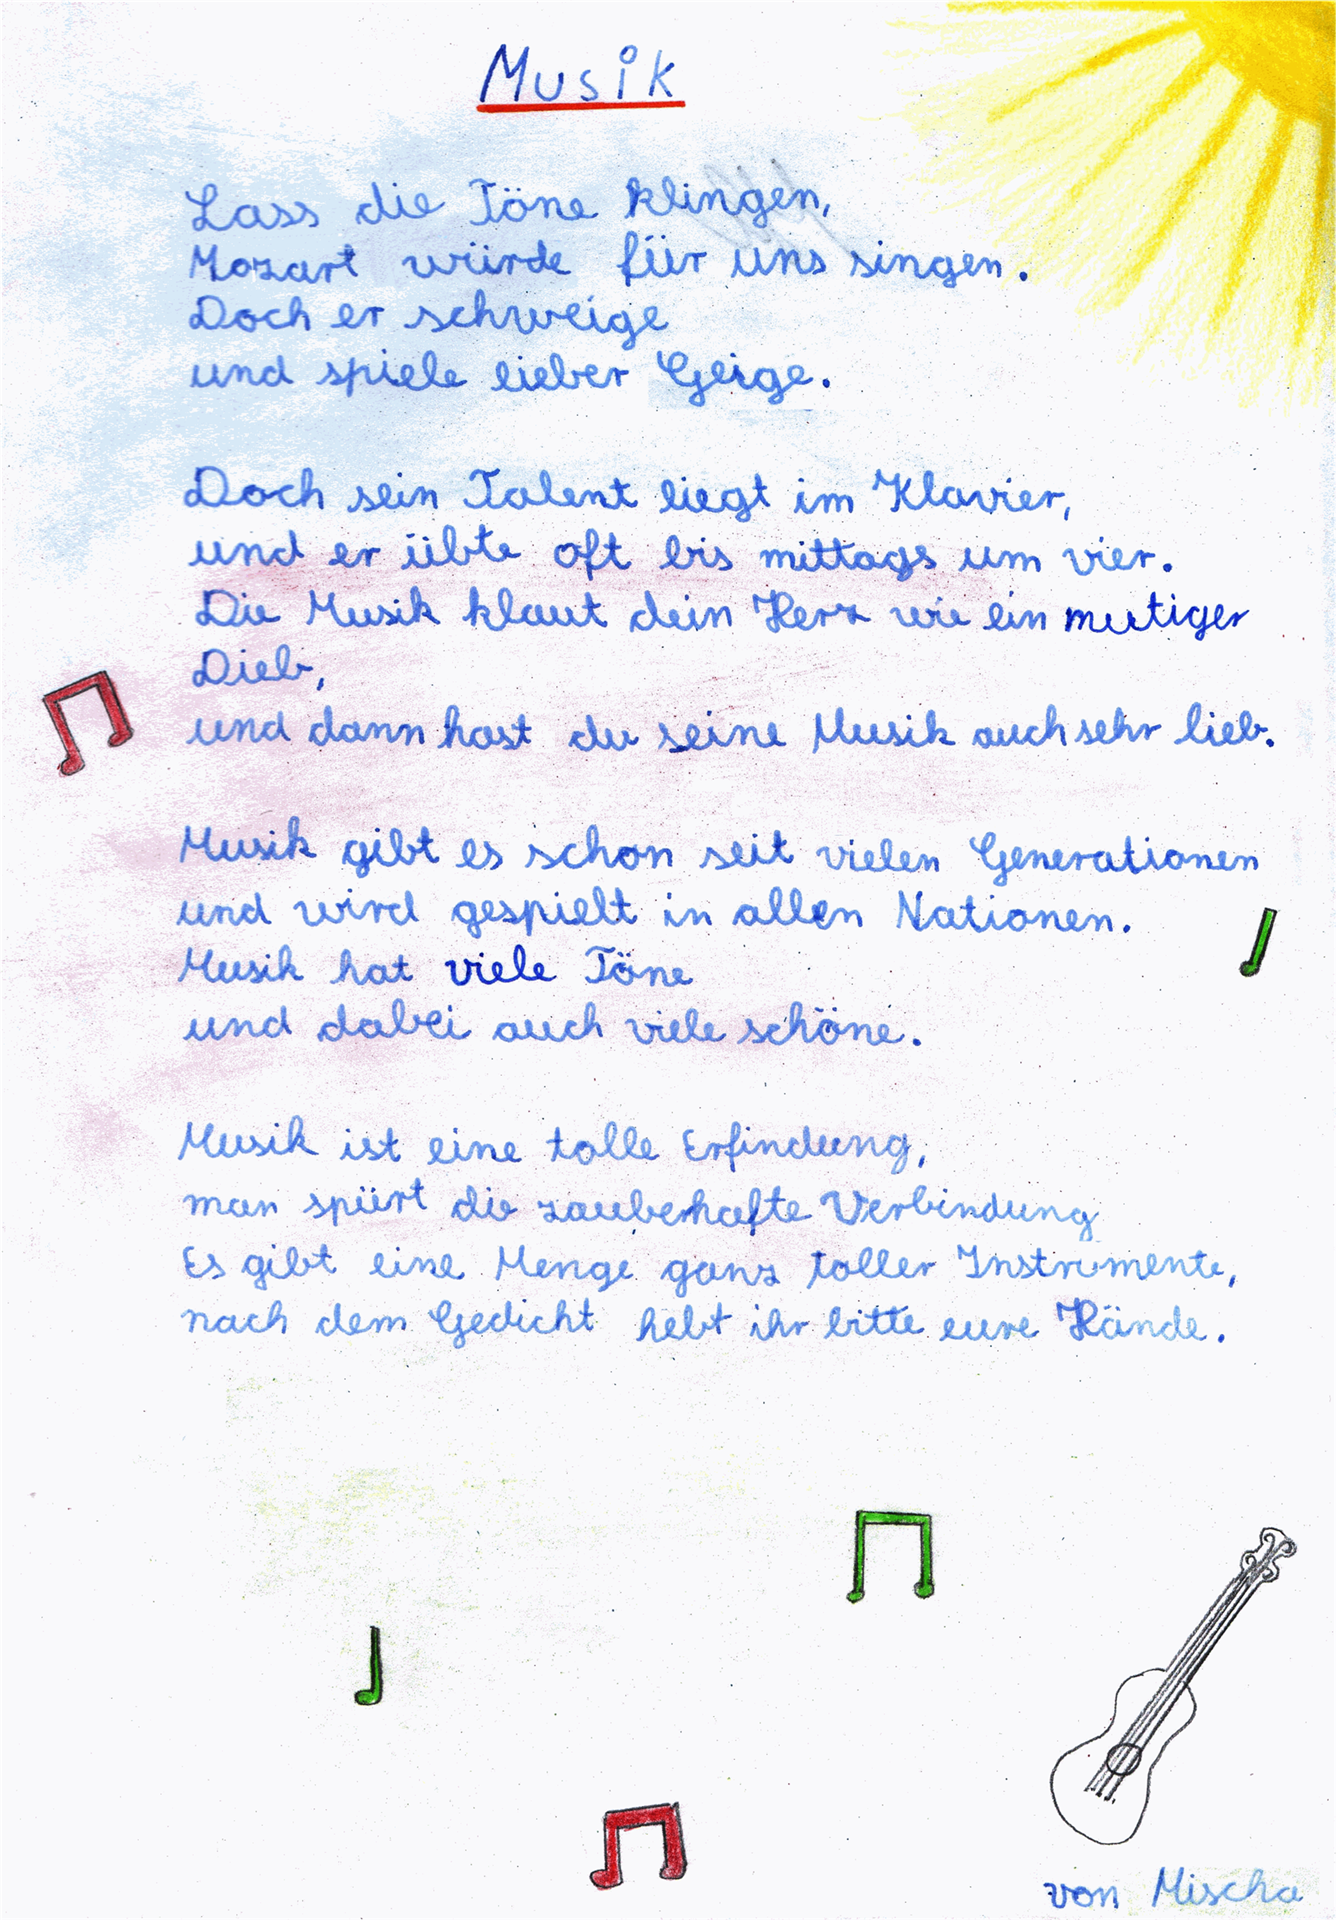 Musik
Lass die Töne klingen,
Mozart würde für uns singen.
Doch er schweige
und spiele lieber Geige.
Doch sein Talent liegt im Klavier,
und er übte oft bis mittags um vier.
Die Musik klaut dein Herz wie ein mutiger
Dieb,
und dann hast du seine Musik auch sehr lieb.
Musik gibt es schon seit vielen Generationen
und wird gespielt in allen Nationen.
Musik hat viele Töne
und dabei auch viele schöne.
Musik ist eine tolle Erfindung,
man spürt die zauberhafte Verbindung
Es gibt eine Menge ganz toller Instrumente,
nach dem Gedicht hebt ihr bitte eure Hände.
von Mischa